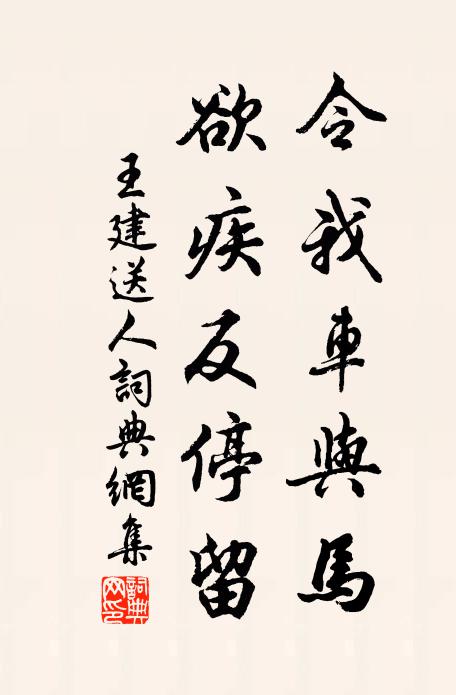 令我車與馬
欲疾反停留
王建送人詞典網集
詞典網印